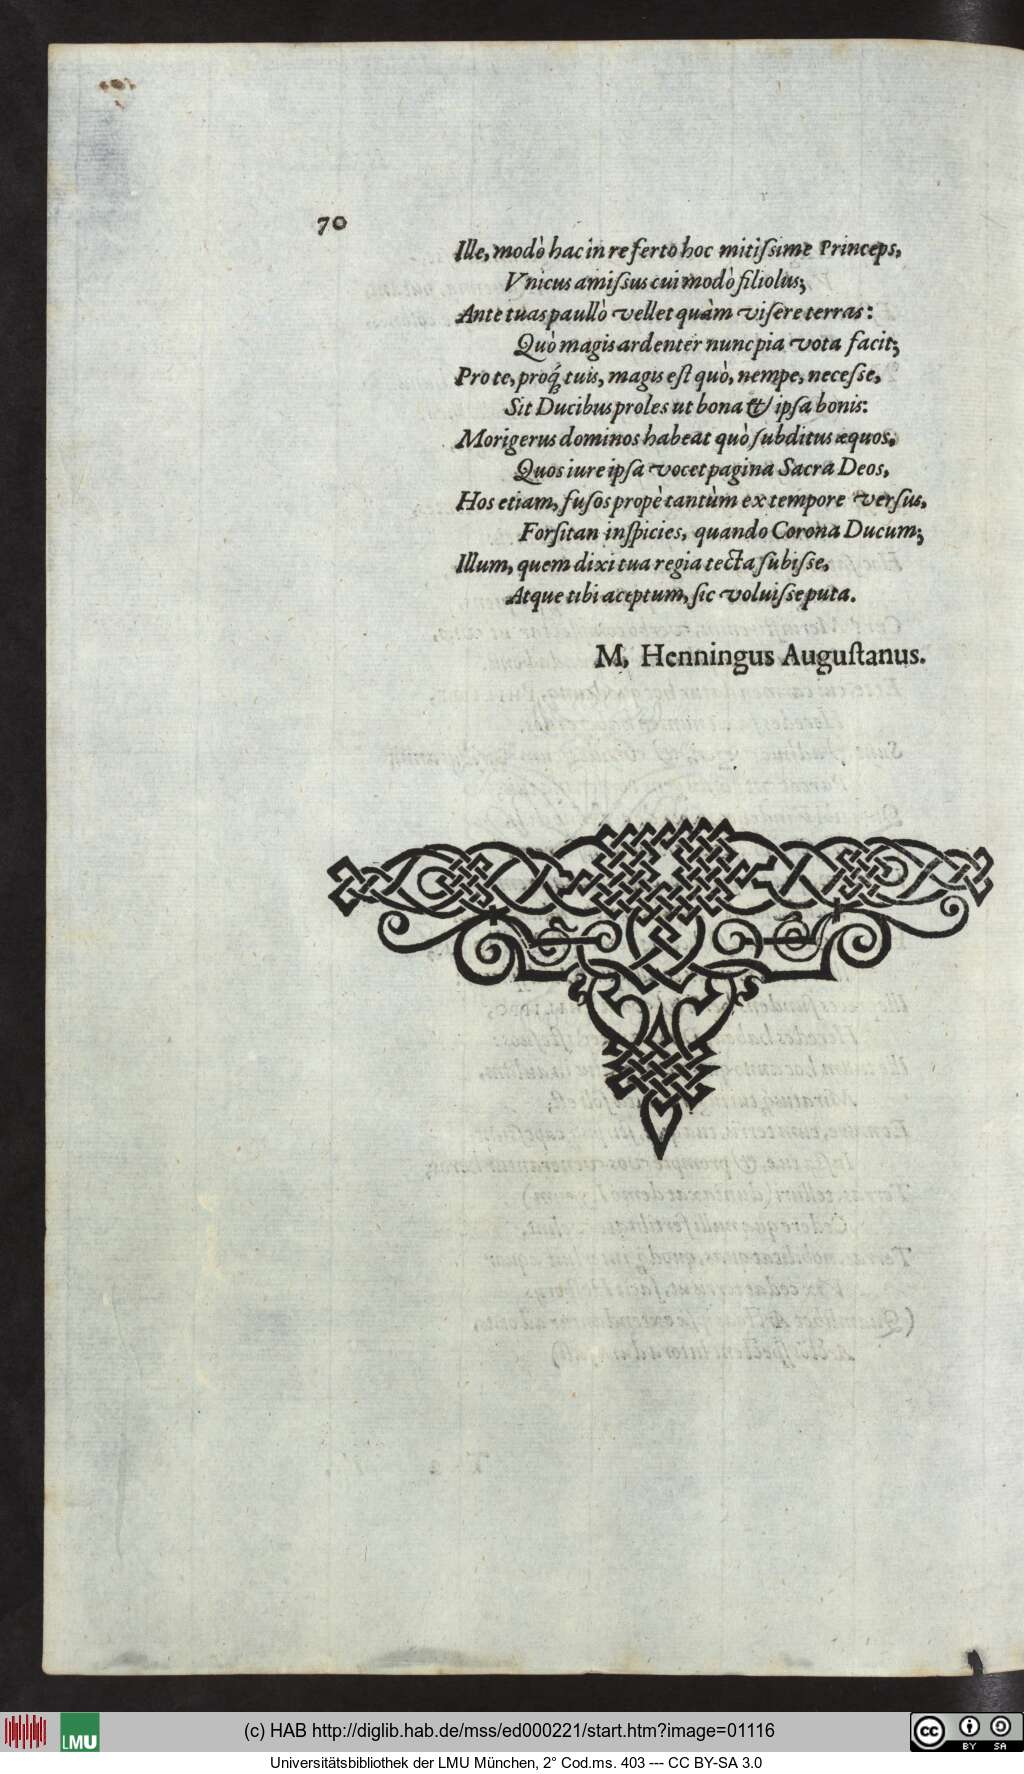 70
Ille, modò hac in re ferto hoc mitiſsime Princeps,
Vnicus amiſsus cui modò filiolus;
Ante tuas paullò vellet quàm viſere terras:
Quò magis ardenter nunc pia vota facit;
Pro te, proq́; tuis, magis eſt quò, nempe, neceſse,
Sit Ducibus proles ut bona & ipſa bonis:
Morigerus dominos habeat quò ſubditus æquos,
Quos iure ipſa vocet pagina Sacra Deos,
Hos etiam, fuſos propè tantùm ex tempore verſus,
Forſitan inſpicies, quando Corona Ducum;
Illum, quem dixi tua regia tecta ſubiſse,
Atque tibi aceptum, ſic voluiſse puta.
M, Henningus Auguſtanus.
(c) HAB http://diglib.hab.de/mss/ed000221/start.htm?image=01116
LMU
cc BY SA
Universitätsbibliothek der LMU München, 2° Cod.ms. 403 --- CC BY-SA 3.0